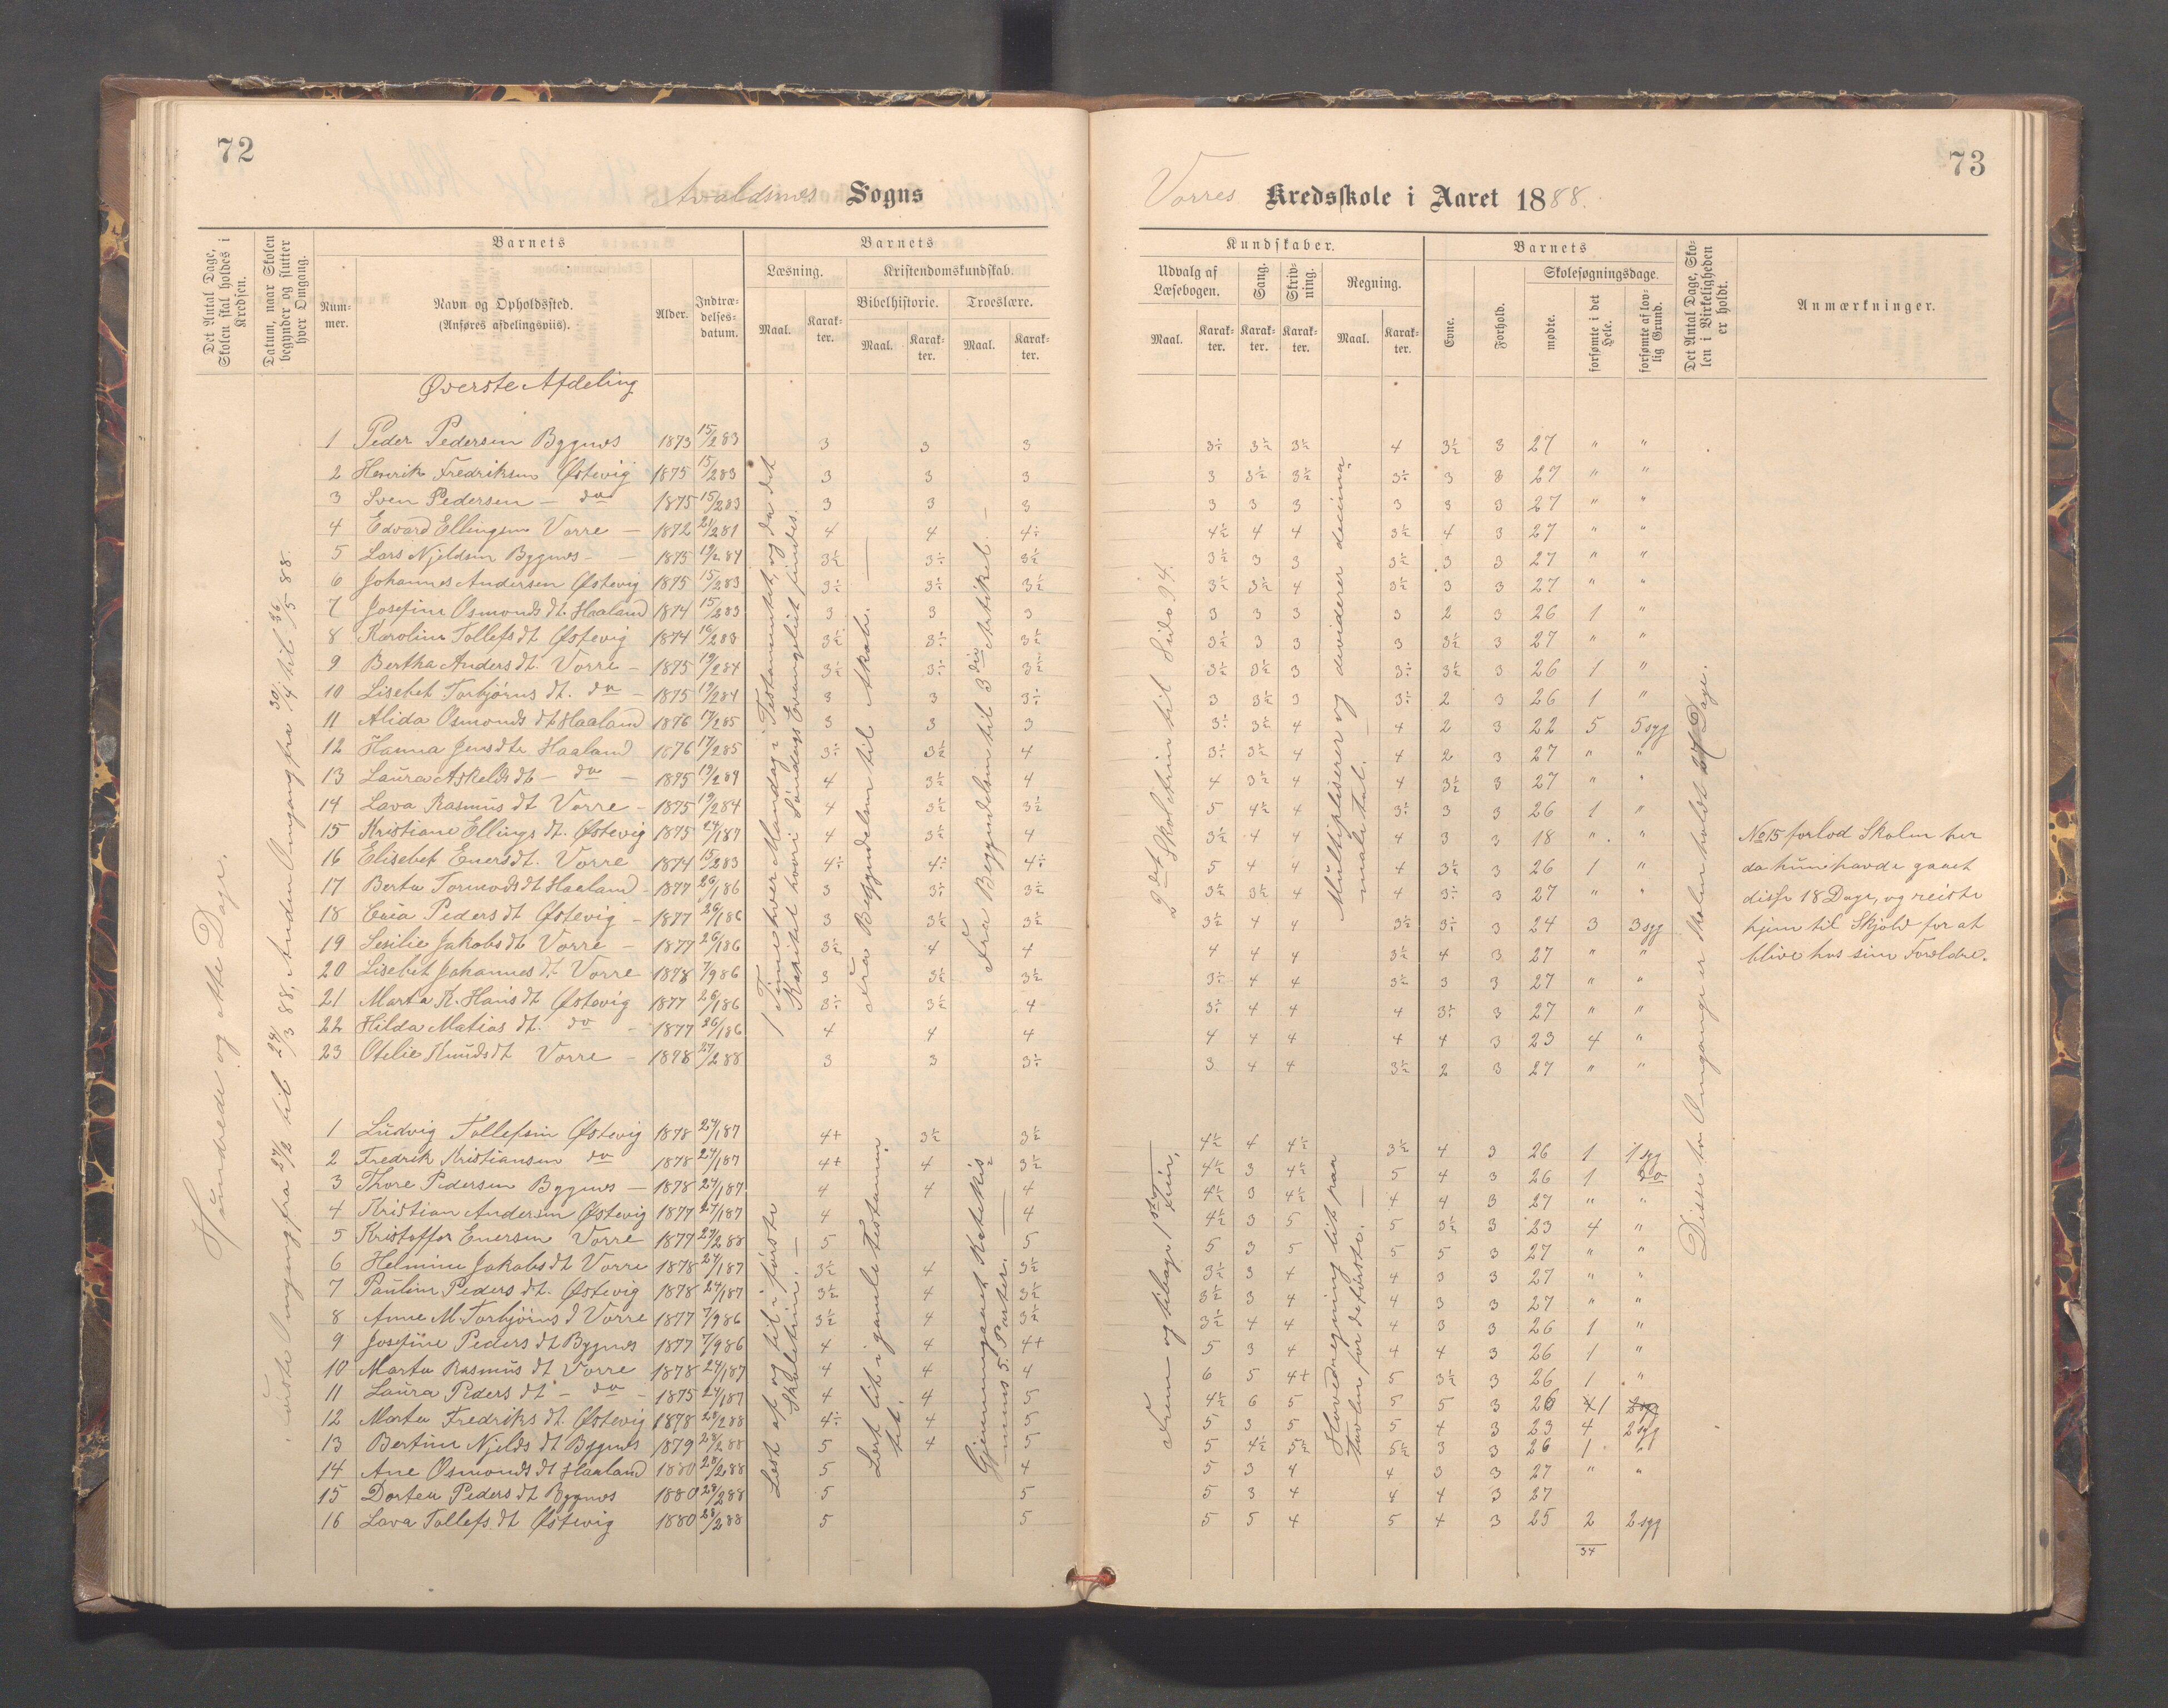 72
Avaldsnes Sogns
Det Antal Dage, Skolen skal holdes i Kredsen.
Datum, naar Skolen begynder og slutter hver Omgang.
Barnets
Nummer.
Navn og Opholdssted.
(Anføres afdelingsviis).
Alder.
Indtrædelsesdatum.
Barnets
Læsning.
Kristendomskundskab.
Bibelhistorie.
Troeslære.
Maal.
Karakter.
Maal.
Karakter.
Maal.
Karakter.
Hundrede og otte Dage.
første Omgang fra 27/2 til 24/3 88, Anden Omgang fra 30/4 til 30/5 88.
Øverste Afdeling
1 Peder Pedersen Bygnes 1873 15/2 83 3 3 3
2 Henrik Fredriksen Østevig 1875 15/2 83 3 3 3
3 Sven Pedersen – do 1875 15/2 83 3 3 3
4 Edvard Ellingsen Vorre – 1872 21/2 81 4 4 4÷
5 Lars Njeldsen Bygnes – 1873 19/2 84 3½ 3÷ 3½
6 Johannes Andersen Østevig 1875 15/2 83 3÷ 3÷ 3½
7 Josefine Osmonds dt. Haaland 1874 15/2 83 3 3 3
8 Karoline Tollefs dt Østevig 1874 16/2 83 3½ 3÷ 3½
9 Bertha Anders dt. Vorre – 1875 19/2 84 3½ 3÷ 3½
10 Lisebet Torbjørns dt. do – 1875 19/2 84 3 3 3÷
11 Alida Osmonds dt Haaland 1876 17/2 85 3 3 3
12 Hanna Jens dtr Haaland 1876 17/2 85 3÷ 3½ 4
13 Laura Askelds dt – do – 1875 19/2 84 4 3½ 4
14 Lava Rasmus dt Vorre – 1875 19/2 84 4 3½ 3½
15 Kristiane Ellings dt. Østevig 1875 24/1 87 4 3½ 4
16 Elisebet Eners dt. Vorre 1874 15/2 83 4÷ 4÷ 4÷
17 Berta Tormods dt Haaland – 1877 26/1 86 3 3÷ 3½
18 Peders dt Østevig – 1877 26/1 86 3 3½ 3½
19 Sesilie Jakobs dt Vorre – 1877 26/1 86 3½ 4 4
20 Lisebet Johannes dt Vorre 1878 7/9 86 3 3½ 3½
21 Marta K. Hans dt Østevig 1877 26/1 86 3÷ 3½ 4
22 Hilda Matias dt. do – 1877 26/1 86 4 4 4
23 Otelie Knuds dt Vorre – 1878 27/2 88 3 3 3÷
1 Time hver Mandag i Testamentet, og da det
Kapitel hvori Søndags Evangeliet findes.
Fra Begyndelsen til Akab. —
Fra Begyndelsen til 3die Artikel. –
1 Ludvig Tollefsen Østevig 1878 24/1 87 4+ 3½ 3½
2 Fredrik Kristiansen do 1878 24/1 87 4+ 4 3½
3 Thore Pedersen Bygnes – 1878 24/1 87 4 4 4
4 Kristian Andersen Østevig 1877 24/1 87 4 4
5 Kristoffer Enersen Vorre 1877 27/2 88 5 5
6 Helmine Jakobs dt Vorre 1878 24/1 87 3½ 4 3½
7 Pauline Peders dt. Østevig 1878 24/1 87 3½ 4 3½
8 Anne M. Torbjørns d Vorre 1877 7/9 86 3½ 4 3½
9 Josefine Peders dt Bygnes 1877 7/9 86 4 4 4+
10 Marta Rasmus dt Vorre 1878 24/1 87 4 4 4
11 Laura Peders dt – do – 1875 24/1 87 4 4 5
12 Marta Fredriks dt. Østevig 1878 28/2 88 4÷ 4 5
13 Bertine Njelds dt Bygnes 1879 28/2 88 5 4 5
14 Ane Osmonds dt Haaland 1880 28/2 88 5 4
15 Dortea Peders dt Bygnes 1880 28/2 88 5 5
16 Lava Tollefs dt Østevig 1880 28/2 88 5 5
Læst af og til i første
Skoletrin. –
Lært lit i gamle Testamen
tet.
Gjennemgaaet Katekis
mens 5. Parter. —
73
Vorres Kredsskole i Aaret 1888.
Kundskaber.
Udvalg af Læsebogen.
Sang.
Skrivning.
Regning.
Maal.
Karakter.
Karakter.
Karakter.
Maal.
Karakter.
Barnets
Evne.
Forhold.
Skolesøgningsdage.
mødte.
forsømte i det Hele.
forsømte af lovlig Grund.
Det Antal Dage, Skolen i Virkeligheden er holdt.
Anmærkninger.
3÷ 3½ 3½ 4 3½ 3 27 " "
3 3½ 3½ 3÷ 3 3 27 " "
3 3 3 3 3 3 27 " "
4½ 4 4 3½ 4 3 27 " "
3½ 3 3 3½ 3 3 27 " "
3½ 3½ 4 3½ 3 3 27 " "
3 3 3 3 2 3 26 1 "
3½ 3 3 3 3½ 3 27 " "
3½ 3½ 3 3÷ 3½ 3 26 1 "
3 3½ 3 3÷ 2 3 26 1 "
3÷ 3½ 4 4 2 3 22 5 5 syg
3÷ 3½ 4 4 2 3 27 " "
4 3½ 4 4 3½ 3 27 " "
5 4½ 4 3÷ 3 3 26 1 "
3½ 4 4 4 3 3 18 " "
5 4 4 4 3½ 3 26 1 "
3½ 3½ 4 4 3÷ 3 27 " "
3½ 4 4 3½ 3÷ 3 24 3 3 syg
4 4 4 3½ 4 3 27 " "
3÷ 4 4 3½ 3 3 27 " "
3÷ 4 4 4 3÷ 3 27 " "
4 4 4 4 4 3 23 4 "
3 4 4 3½ 2 3 27 " "
2det Skoletrin til Side 94.
Multipliserer og dividerer decima
maltal. –
No 15 forlod Skolen her
da hun havde gaaet
disse 18 Dage, og reiste
hjem til Skjold for at
blive hos sine Forældre.
Disse to Omgange er Skolen holdt 27 Dage.
4½ 4 4½ 3½ 4 3 26 1 1 syg
4½ 3 4½ 5 4 3 26 1 do
4½ 3 4½ 4 4 3 27 " "
4½ 3 5 5 3½ 3 23 4 "
5 3 5 5 5 3 27 " "
3½ 3 4 4 3 3 27 " "
3½ 3 4 4 3 3 27 " "
3½ 4 4 4 3 3 26 1 "
5 3 4 4 4 3 26 1 "
6 5 4+ 5 3½ 3 26 1 "
4½ 6 5 5 5 3 26 1
5 3 5 5 4 3 23 4 2 syg
5 4½ 5½ 5½ 3 3 26 1 "
5 3 4 4 3 3 27 " "
5 3 4 4 4 3 27
5 5 4 5 4 3 25 2 2 syg
34
Frem og tilbage 1ste
Trin,
Hovedregning lit paa
tavlen for de første. —